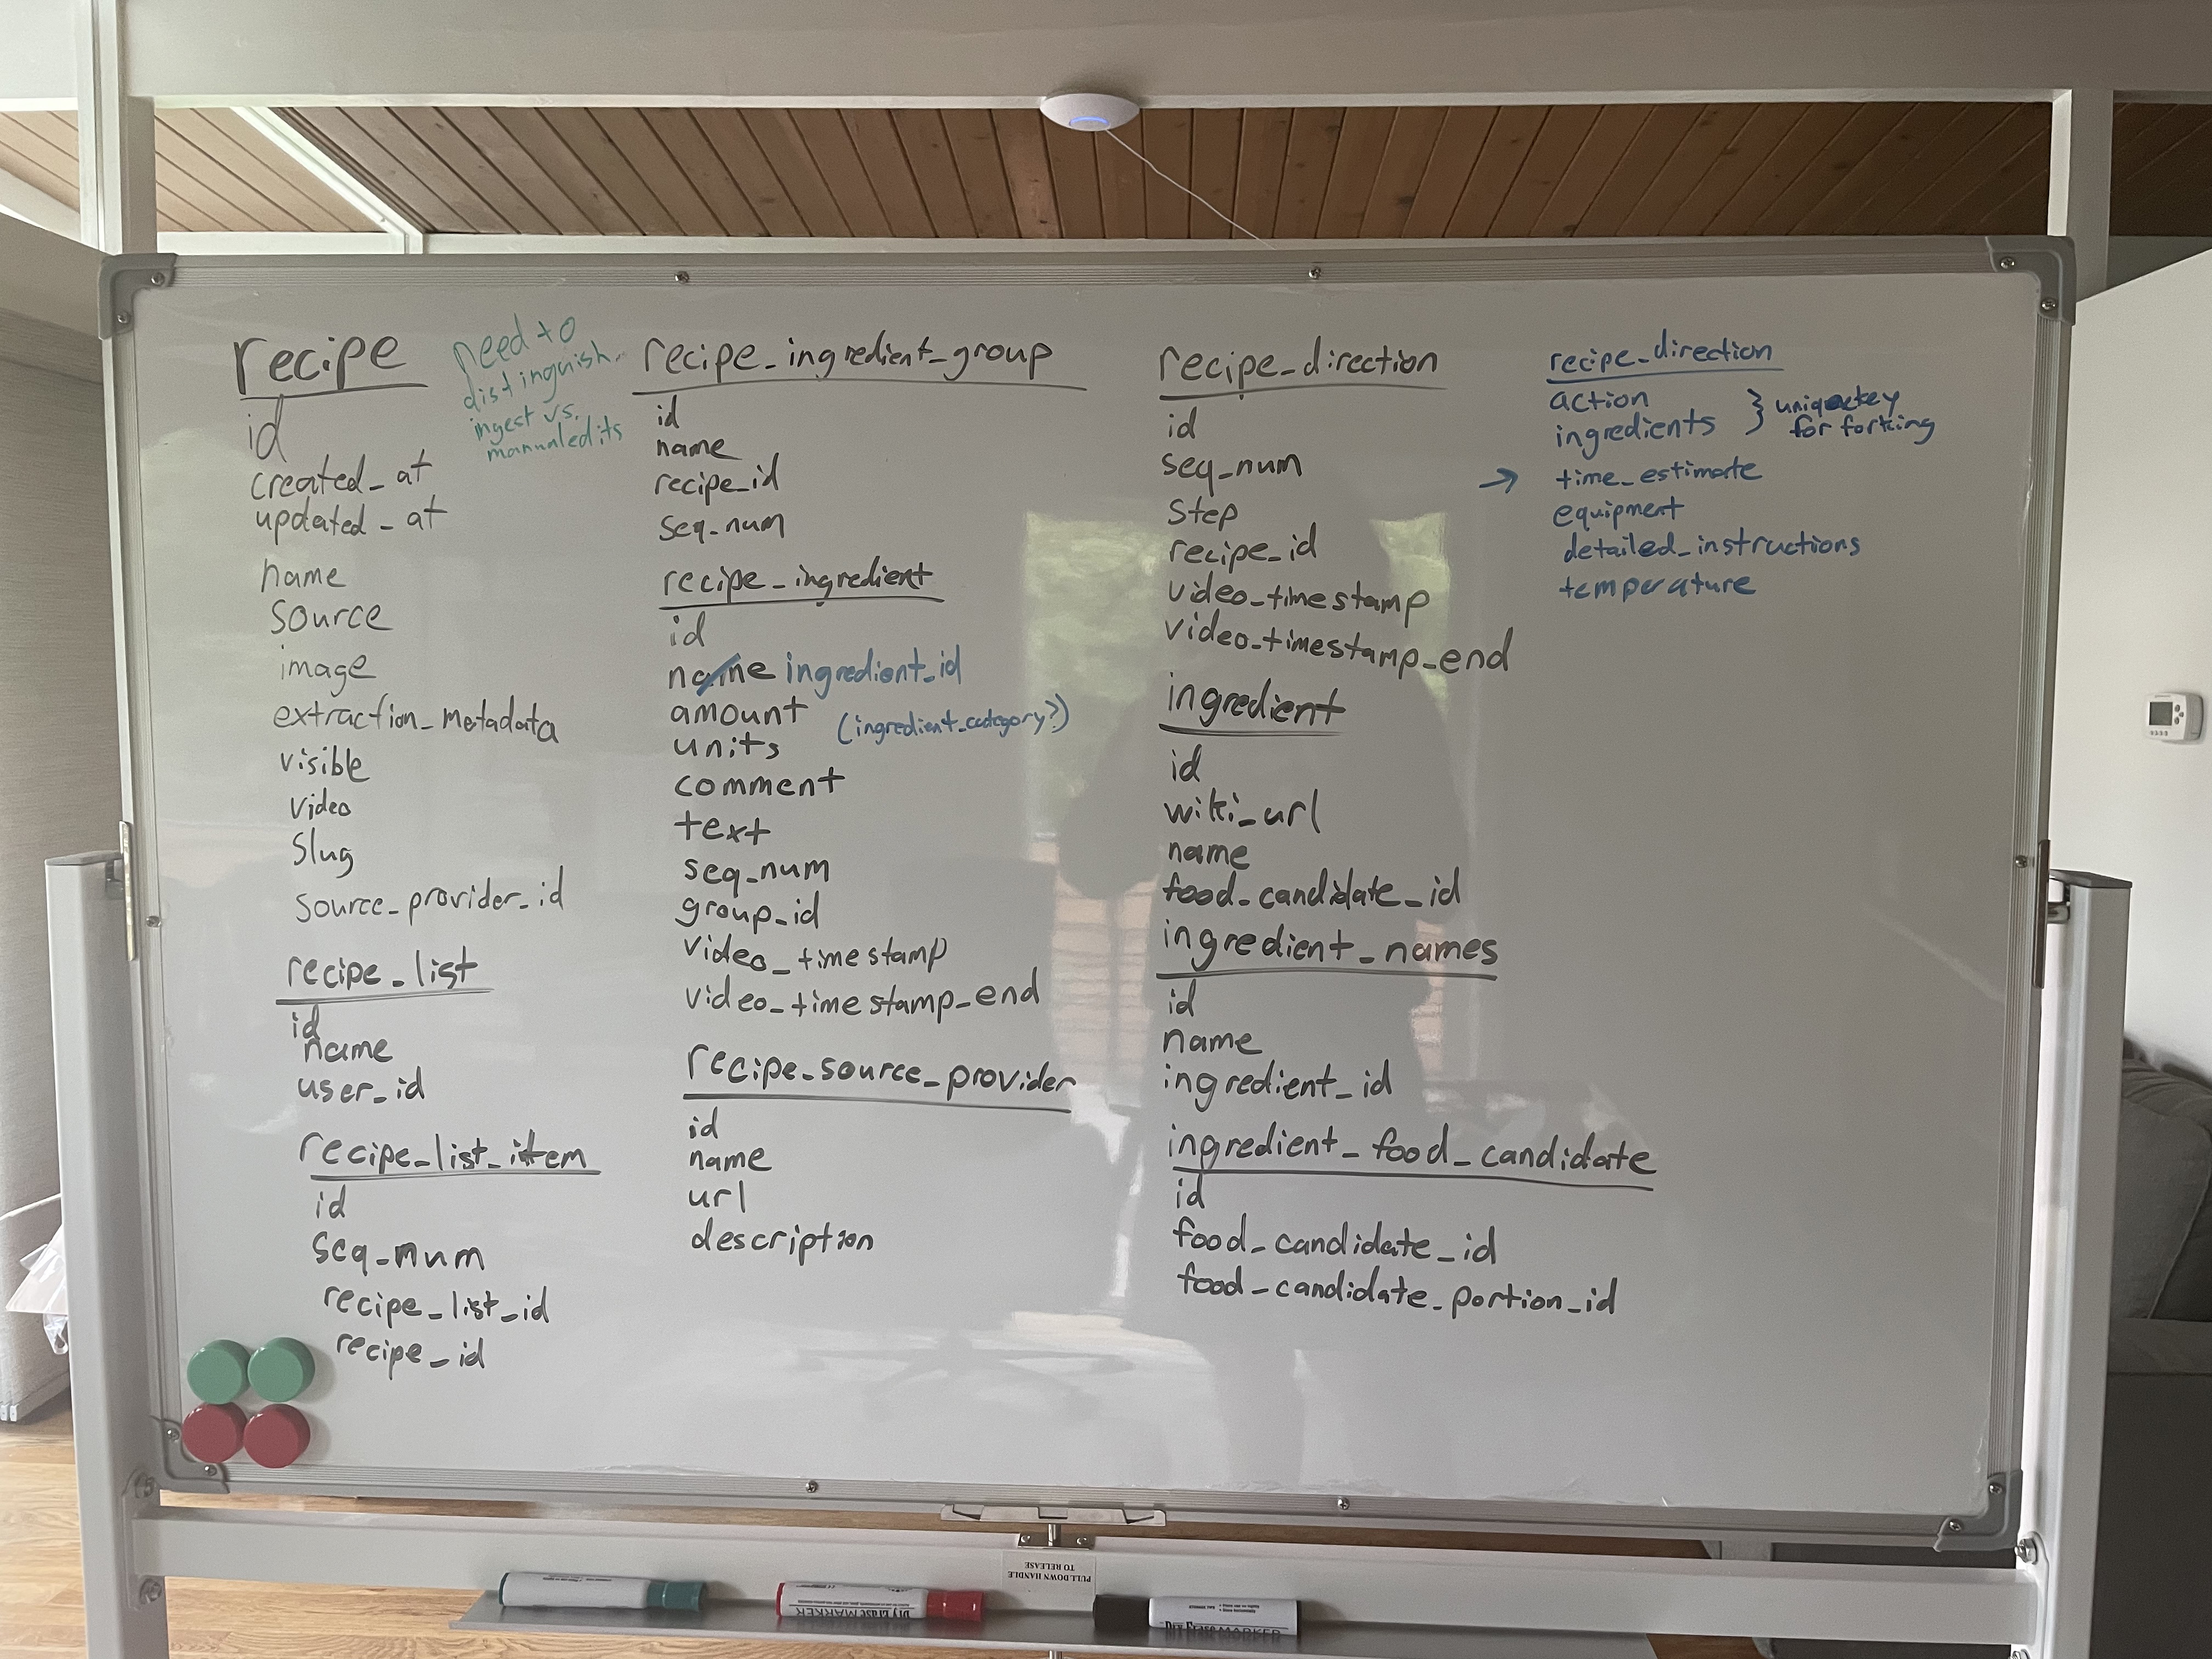 recipe
id
created_at
updated_at
name
source
image
extraction_metadata
visible
video
slug
source_provider_id
need to
distinguish
ingest vs.
manual edits
recipe_list
id
name
user_id
recipe_list_item
id
seq_num
recipe_list_id
recipe_id
recipe_ingredient_group
id
name
recipe_id
seq_num
recipe_ingredient
id
name ingredient_id
amount (ingredient_category?)
units
comment
text
seq_num
group_id
video_timestamp
video_timestamp_end
recipe_source_provider
id
name
url
description
recipe_direction
id
seq_num
step
recipe_id
video_timestamp
video_timestamp_end
ingredient
id
wiki_url
name
food_candidate_id
ingredient_names
id
name
ingredient_id
ingredient_food_candidate
id
food_candidate_id
food_candidate_portion_id
recipe_direction
action
ingredients } unique key
for forking
→ time_estimate
equipment
detailed_instructions
temperature
PULL DOWN HANDLE
TO RELEASE
MARKER
Dry Erase MARKER